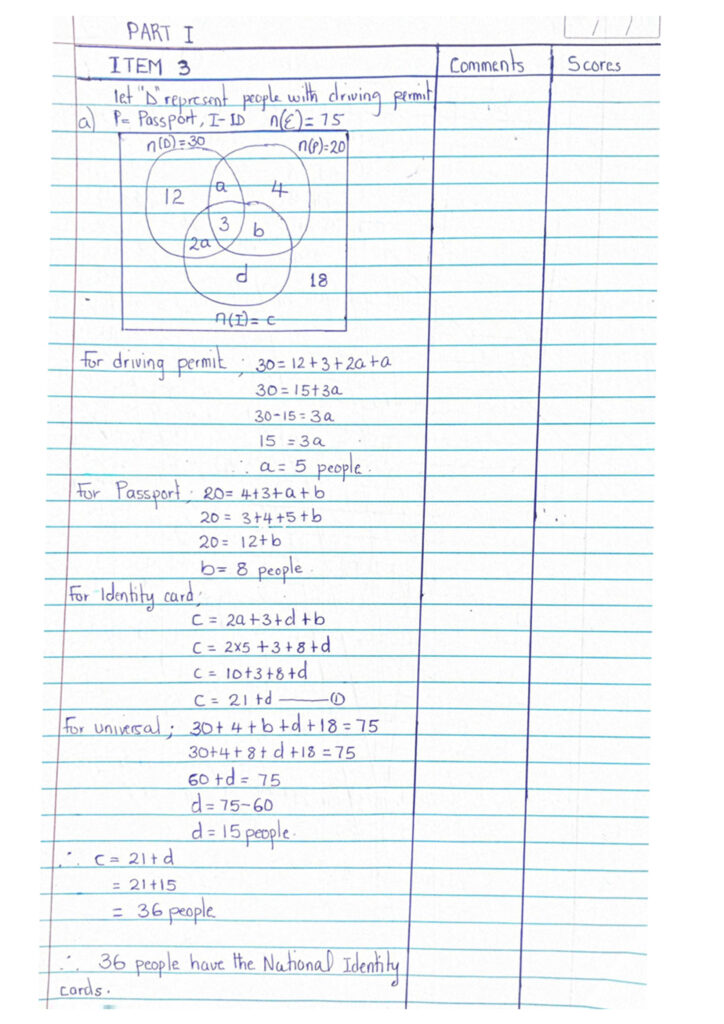 PART I
/ /
ITEM 3
Comments
Scores
let "D" represent people with driving permit
a) P= Passport, I-ID n(Ɛ)= 75
n(D)=30
n(P)=20
12
a
4
3
b
2a
d
18
n(I)= c
For driving permit ; 30=12+3+2a+a
30=15+3a
30-15=3a
15 =3a
∴ a= 5 people.
For Passport; 20= 4+3+a+b
20= 3+4+5+b
20= 12+b
b= 8 people.
For Identity card;
C = 2a+3+d+b
C = 2x5 +3+8+d
C = 10+3+8+d
C = 21+d ——①
For universal; 30+ 4+b+d+18=75
30+4+8+d+18=75
60+d= 75
d=75-60
d=15 people.
∴ C= 21+d
= 21+15
= 36 people
∴ 36 people have the National Identity
cards.